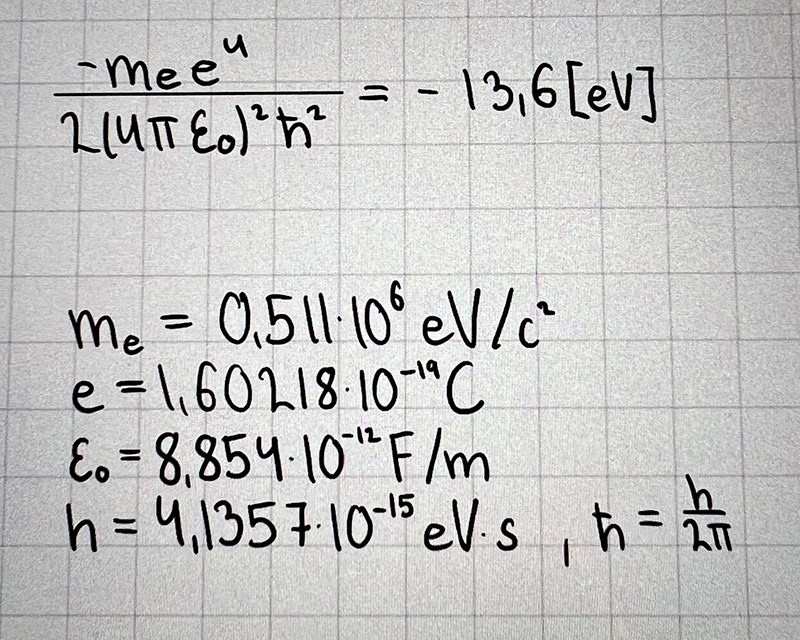 -mₑe⁴ / 2(4πε₀)²ħ² = - 13,6 [eV]
mₑ = 0,511·10⁶ eV/c²
e = 1,60218·10⁻¹⁹ C
ε₀ = 8,854·10⁻¹² F/m
h = 4,1357·10⁻¹⁵ eV·s , ħ = h/2π